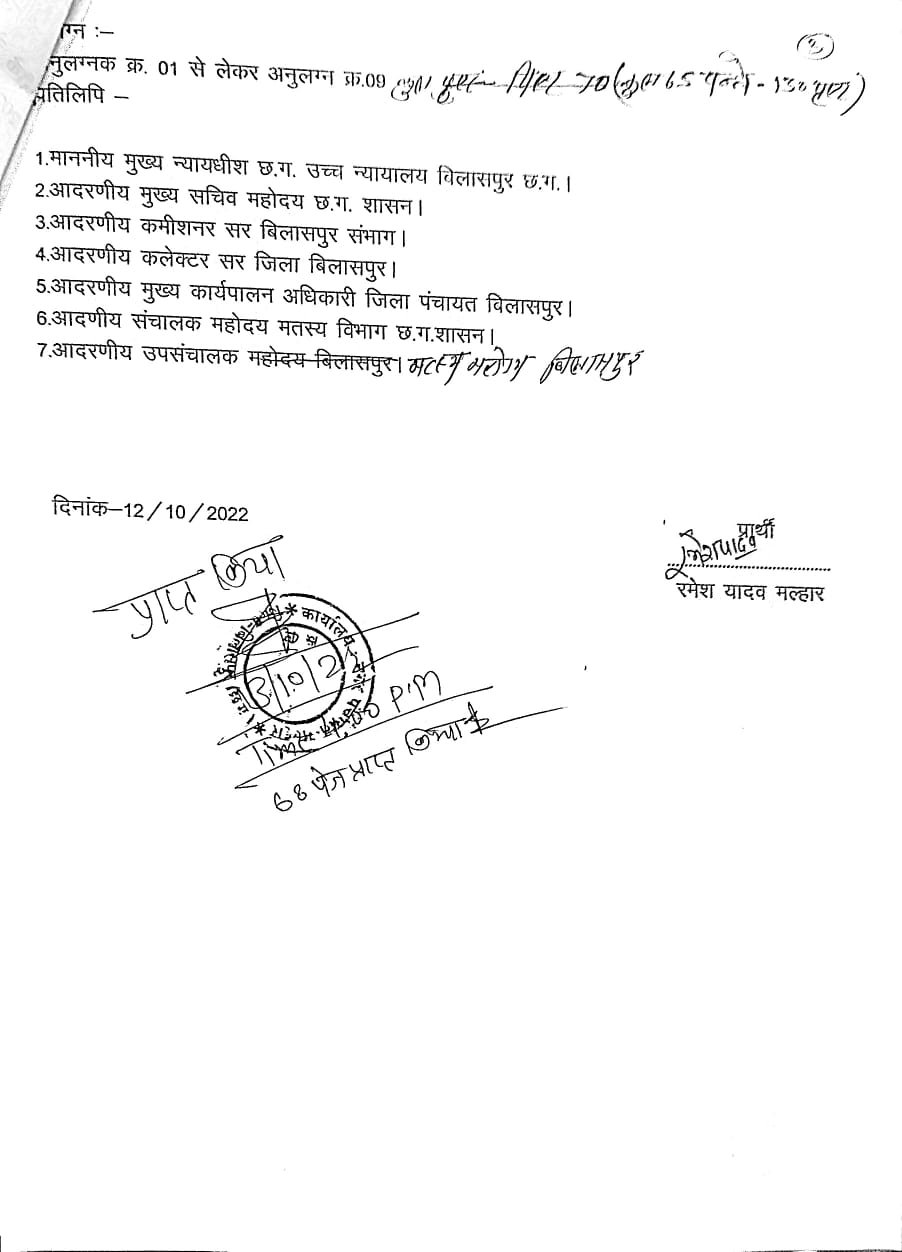 ग्न :–
नुलग्नक क्र. 01 से लेकर अनुलग्न क्र.09
प्रतिलिपि –
1.माननीय मुख्य न्यायधीश छ.ग. उच्च न्यायालय विलासपुर छ.ग.।
2.आदरणीय मुख्य सचिव महोदय छ.ग. शासन।
3.आदरणीय कमीशनर सर बिलासपुर संभाग।
4.आदरणीय कलेक्टर सर जिला बिलासपुर।
5.आदरणीय मुख्य कार्यपालन अधिकारी जिला पंचायत विलासपुर।
6.आदणीय संचालक महोदय मतस्य विभाग छ.ग.शासन।
7.आदरणीय उपसंचालक महोदय बिलासपुर। मत्स्य बिलासपुर
दिनांक–12/10/2022
प्रार्थी
रमेश यादव
रमेश यादव मल्हार
प्राप्त किया
कार्यालय
PM
68 पेज प्राप्त किया